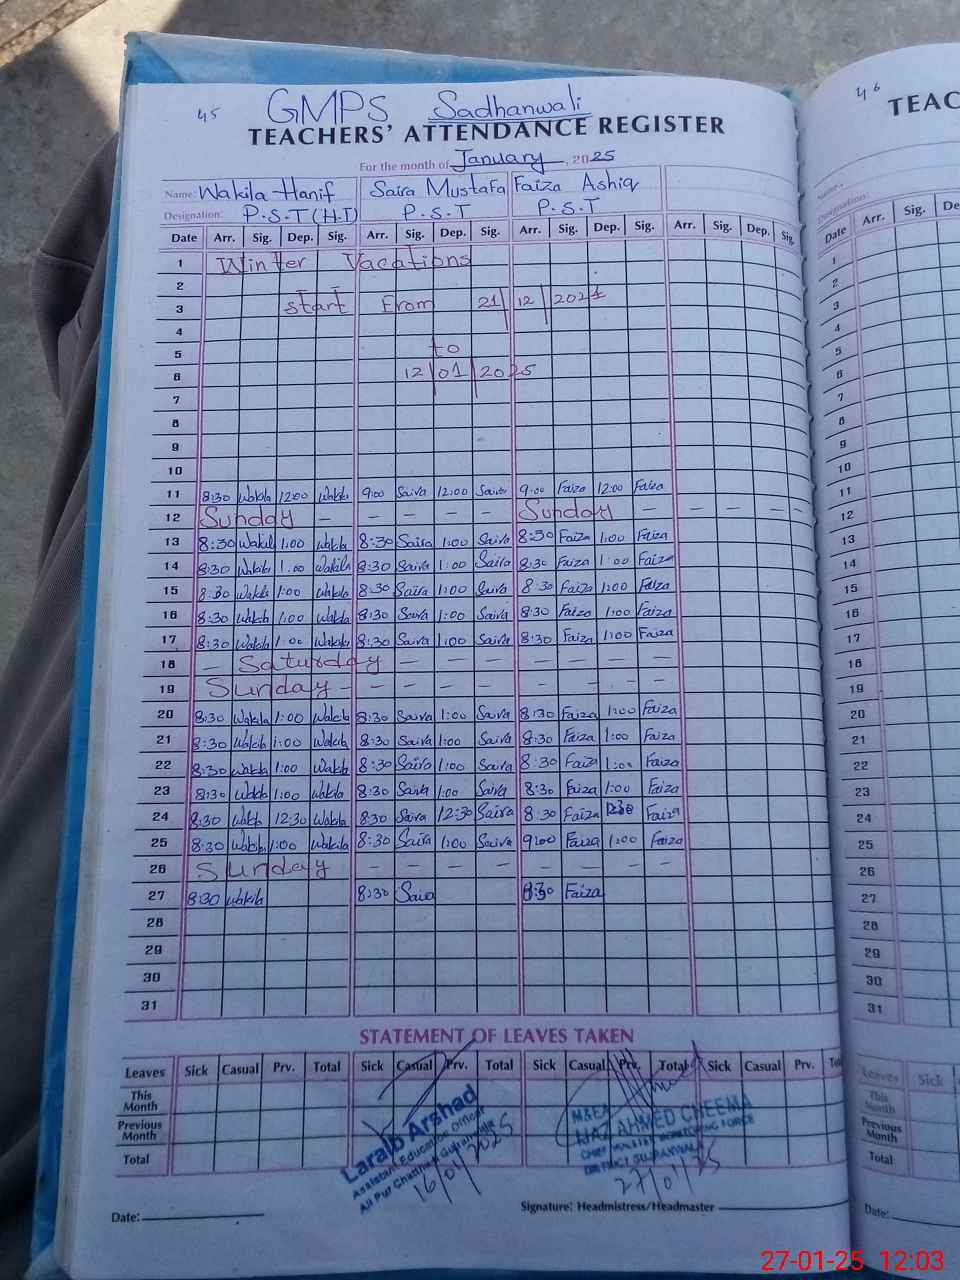 45 GMPS Sadhanwali
TEACHERS' ATTENDANCE REGISTER
For the month of January, 2025
Name: Wakila Hanif Saira Mustafa Faiza Ashiq
Designation: P.S.T (H.T) P.S.T P.S.T
Date Arr. Sig. Dep. Sig. Arr. Sig. Dep. Sig. Arr. Sig. Dep. Sig. Arr. Sig. Dep. Sig.
1 Winter Vacations
2
3 Start From 21/12/2024
4
5 to
6 12/01/2025
7
8
9
10
11 8:30 Wakila 12:00 Wakila 9:00 Saira 12:00 Saira 9:00 Faiza 12:00 Faiza
12 Sunday – – – – – Sunday – – – – –
13 8:30 Wakila 1:00 Wakila 8:30 Saira 1:00 Saira 8:30 Faiza 1:00 Faiza
14 8:30 Wakila 1:00 Wakila 8:30 Saira 1:00 Saira 8:30 Faiza 1:00 Faiza
15 8:30 Wakila 1:00 Wakila 8:30 Saira 1:00 Saira 8:30 Faiza 1:00 Faiza
16 8:30 Wakila 1:00 Wakila 8:30 Saira 1:00 Saira 8:30 Faiza 1:00 Faiza
17 8:30 Wakila 1:00 Wakila 8:30 Saira 1:00 Saira 8:30 Faiza 1:00 Faiza
18 – Saturday – – – – – – –
19 Sunday – – – – – – – –
20 8:30 Wakila 1:00 Wakila 8:30 Saira 1:00 Saira 8:30 Faiza 1:00 Faiza
21 8:30 Wakila 1:00 Wakila 8:30 Saira 1:00 Saira 8:30 Faiza 1:00 Faiza
22 8:30 Wakila 1:00 Wakila 8:30 Saira 1:00 Saira 8:30 Faiza 1:00 Faiza
23 8:30 Wakila 1:00 Wakila 8:30 Saira 1:00 Saira 8:30 Faiza 1:00 Faiza
24 8:30 Wakila 12:30 Wakila 8:30 Saira 12:30 Saira 8:30 Faiza 12:30 Faiza
25 8:30 Wakila 1:00 Wakila 8:30 Saira 1:00 Saira 9:00 Faiza 1:00 Faiza
26 Sunday – – – – – – –
27 8:30 Wakila 8:30 Saira 8:30 Faiza
28
29
30
31
STATEMENT OF LEAVES TAKEN
Leaves Sick Casual Prv. Total Sick Casual Prv. Total Sick Casual Prv. Total Sick Casual Prv.
This Month
Previous Month
Total
Laraib Arshad
Assistant Education Officer
Ali Pur Chattha Gujranwala
16/01/2025
M&EA
IJAZ AHMED CHEEMA
CHIEF MINISTER MONITORING FORCE
DISTRICT GUJRANWALA
27/01/25
Date:
Signature: Headmistress/Headmaster
46
TEAC
Name:
Designation:
Date Arr. Sig. De
1
2
3
4
5
6
7
8
9
10
11
12
13
14
15
16
17
18
19
20
21
22
23
24
25
26
27
28
29
30
31
Leaves Sick
This Month
Previous Month
Total
Date:
27-01-25 12:03